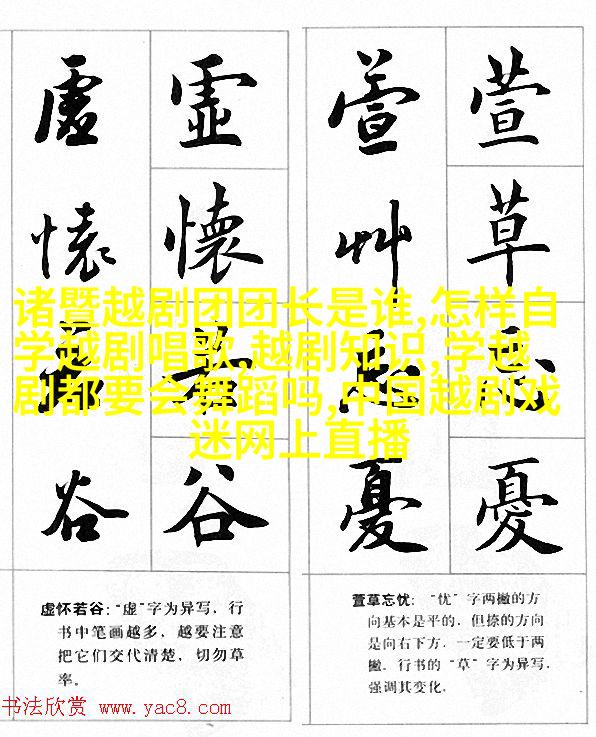 虚懷若谷
虛懷若谷
萱艸忘憂
萱草忘憂
诸暨越剧团团长是谁,怎样自
学越剧唱歌,越剧知识,学越
剧都要会舞蹈吗,中国越剧戏
迷网上直播
虚怀若谷:“虚”字为异写，行
书中笔画越多，越要注意
把它们交代清楚，切勿草
率。
萱草忘忧:“忧”字两撇的方
向基本是平的，但捺的方向
是向右下方，一定要低于两
撇。行书的“草”字为异写，
强调其变化。
书法欣赏 www.yac8.com